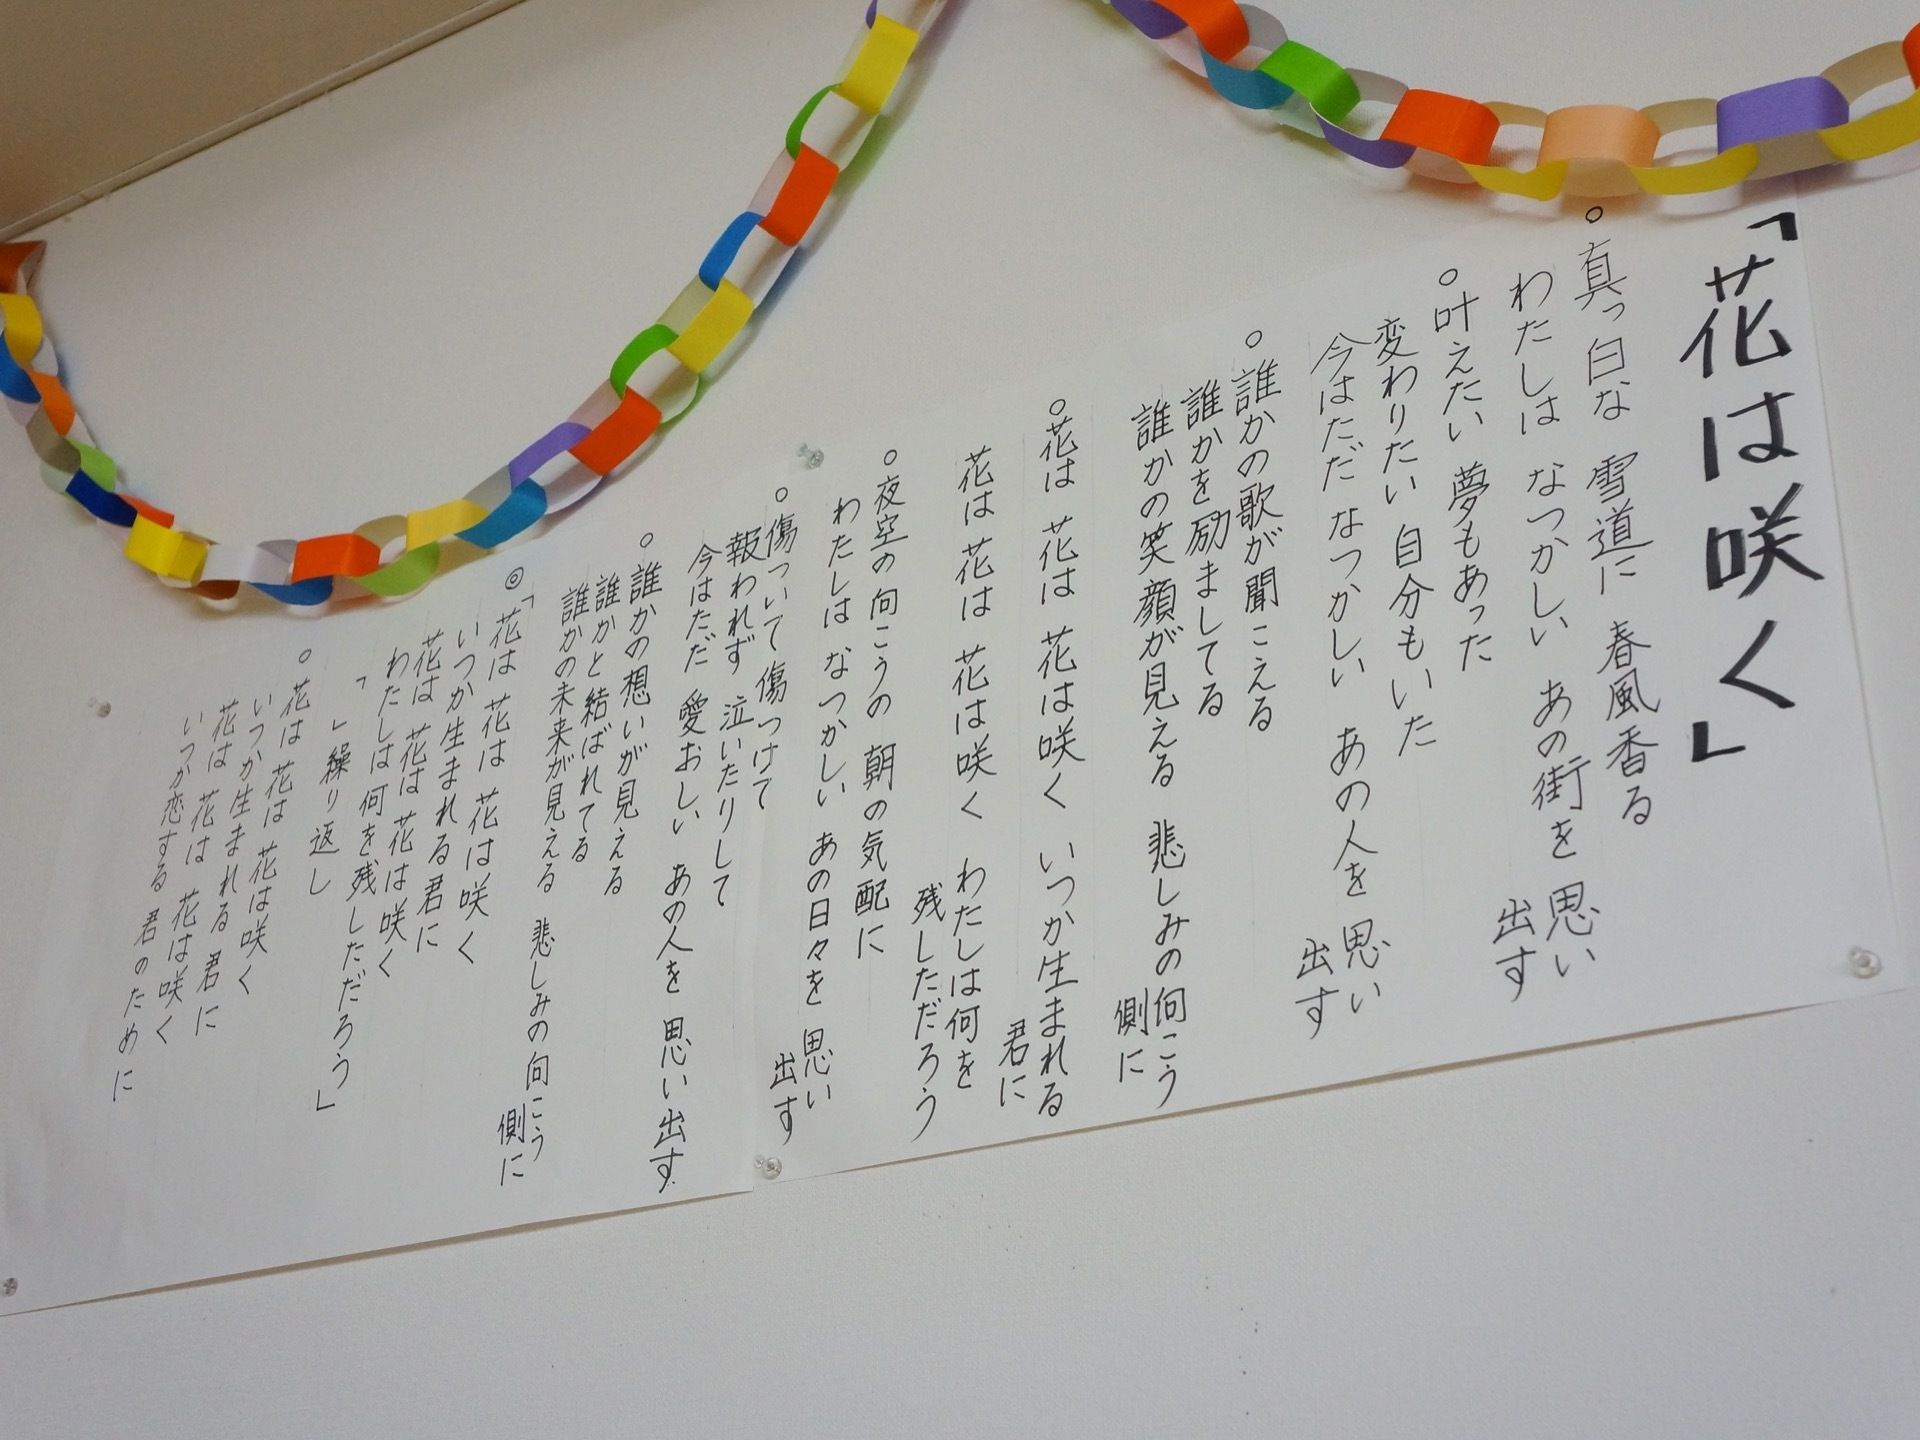 「花は咲く」
○真っ白な 雪道に 春風香る
わたしは なつかしい あの街を 思い
出す
○叶えたい 夢もあった
変わりたい 自分もいた
今はただ なつかしい あの人を 思い
出す
○誰かの歌が聞こえる
誰かを励ましてる
誰かの笑顔が見える 悲しみの向こう
側に
○花は 花は 花は咲く いつか生まれる
君に
花は 花は 花は咲く わたしは何を
残しただろう
○夜空の向こうの 朝の気配に
わたしは なつかしい あの日々を 思い
出す
○傷ついて 傷つけて
報われず 泣いたりして
今はただ 愛おしい あの人を 思い出す
○誰かの想いが見える
誰かと結ばれてる
誰かの未来が見える 悲しみの向こう
側に
◎「花は 花は 花は咲く
いつか生まれる君に
花は 花は 花は咲く
わたしは何を残しただろう」
「 」繰り返し
○花は 花は 花は咲く
いつか生まれる 君に
花は 花は 花は咲く
いつか恋する 君のために